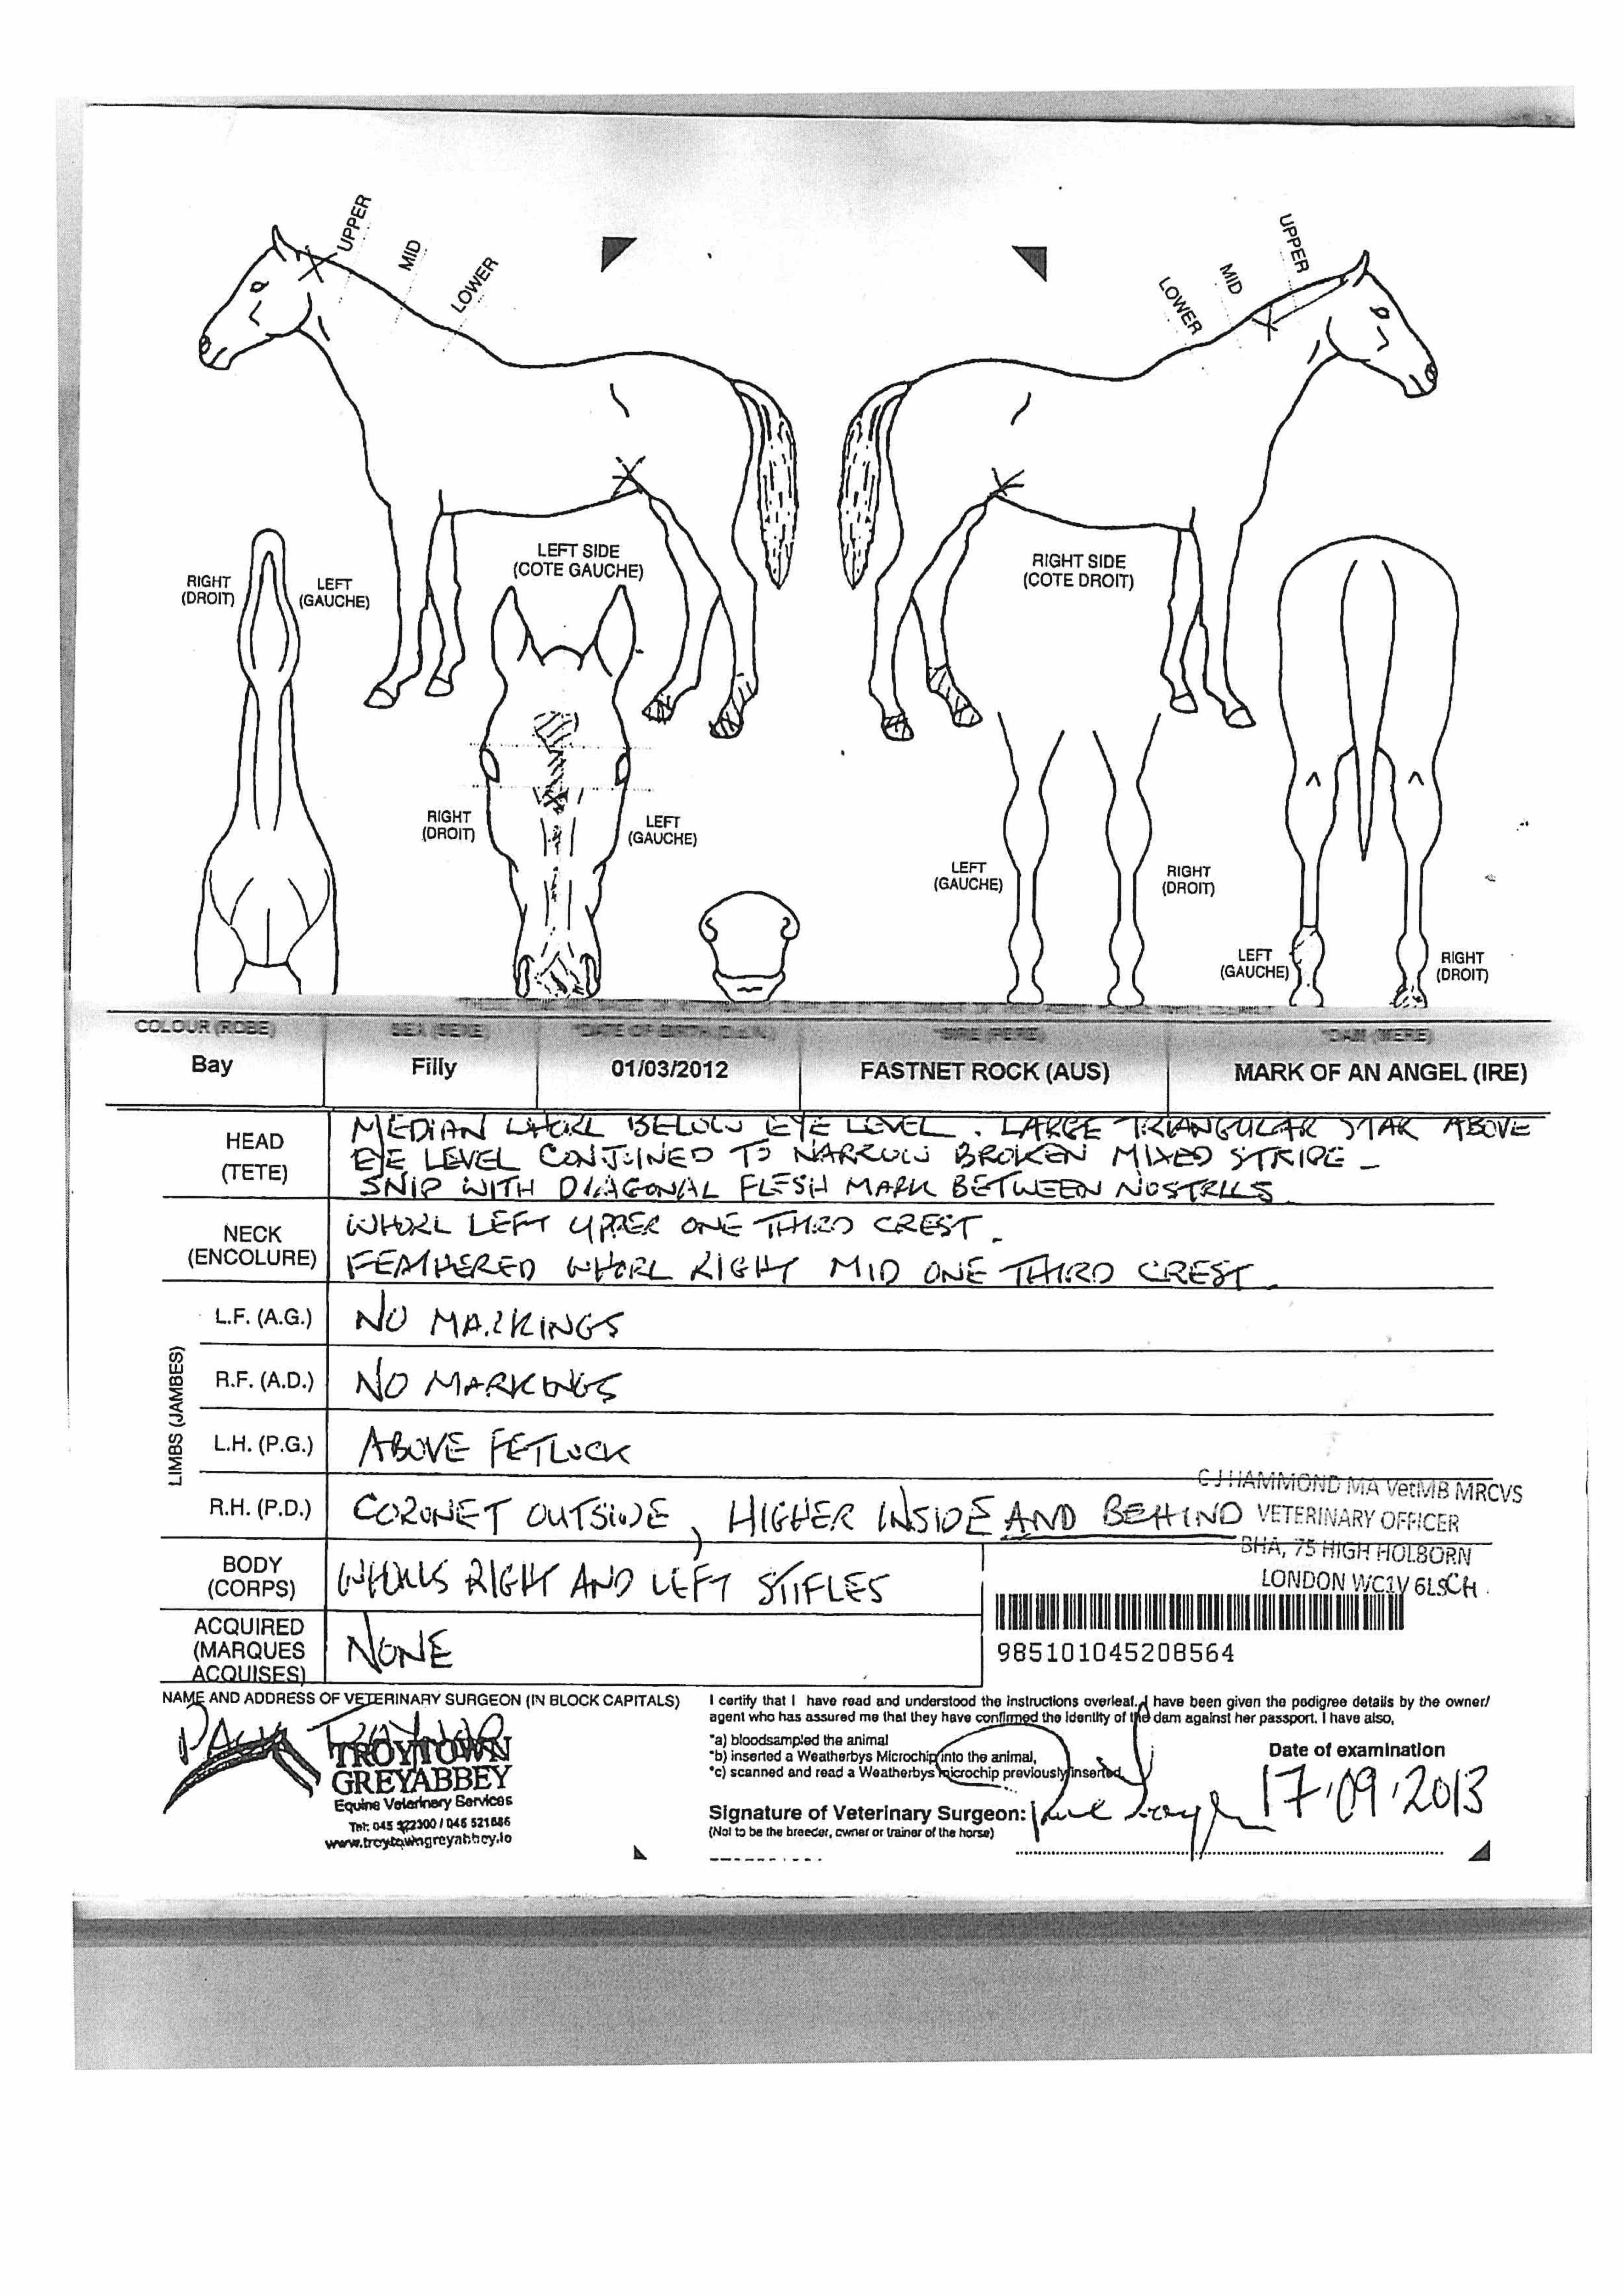 UPPER
MID
LOWER
UPPER
MID
LOWER
LEFT SIDE
(COTE GAUCHE)
RIGHT SIDE
(COTE DROIT)
RIGHT
(DROIT)
LEFT
(GAUCHE)
RIGHT
(DROIT)
LEFT
(GAUCHE)
LEFT
(GAUCHE)
RIGHT
(DROIT)
LEFT
(GAUCHE)
RIGHT
(DROIT)
COLOUR (ROBE) SEX (SEXE) *DATE OF BIRTH (D.d.N.) *SIRE (PERE) *DAM (MERE)
Bay Filly 01/03/2012 FASTNET ROCK (AUS) MARK OF AN ANGEL (IRE)
HEAD
(TETE)
MEDIAN WHORL BELOW EYE LEVEL. LARGE TRIANGULAR STAR ABOVE
EYE LEVEL CONJOINED TO NARROW BROKEN MIXED STRIPE -
SNIP WITH DIAGONAL FLESH MARK BETWEEN NOSTRILS
NECK
(ENCOLURE)
WHORL LEFT UPPER ONE THIRD CREST.
FEATHERED WHORL RIGHT MID ONE THIRD CREST.
LIMBS (JAMBES)
L.F. (A.G.) NO MARKINGS
R.F. (A.D.) NO MARKINGS
L.H. (P.G.) ABOVE FETLOCK
R.H. (P.D.) CORONET OUTSIDE, HIGHER INSIDE AND BEHIND
C J HAMMOND MA VetMB MRCVS
VETERINARY OFFICER
BHA, 75 HIGH HOLBORN
LONDON WC1V 6LS CH.
BODY
(CORPS)
WHORLS RIGHT AND LEFT STIFLES
ACQUIRED
(MARQUES
ACQUISES)
NONE
985101045208564
NAME AND ADDRESS OF VETERINARY SURGEON (IN BLOCK CAPITALS)
TROYTOWN
GREYABBEY
Equine Veterinary Services
Tel: 045 522300 / 045 521686
www.troytowngreyabbey.ie
I certify that I have read and understood the instructions overleaf. I have been given the pedigree details by the owner/
agent who has assured me that they have confirmed the identity of the dam against her passport. I have also,
*a) bloodsampled the animal
*b) inserted a Weatherbys Microchip into the animal,
*c) scanned and read a Weatherbys microchip previously inserted.
Date of examination
17.09.2013
Signature of Veterinary Surgeon:
(Not to be the breeder, owner or trainer of the horse)